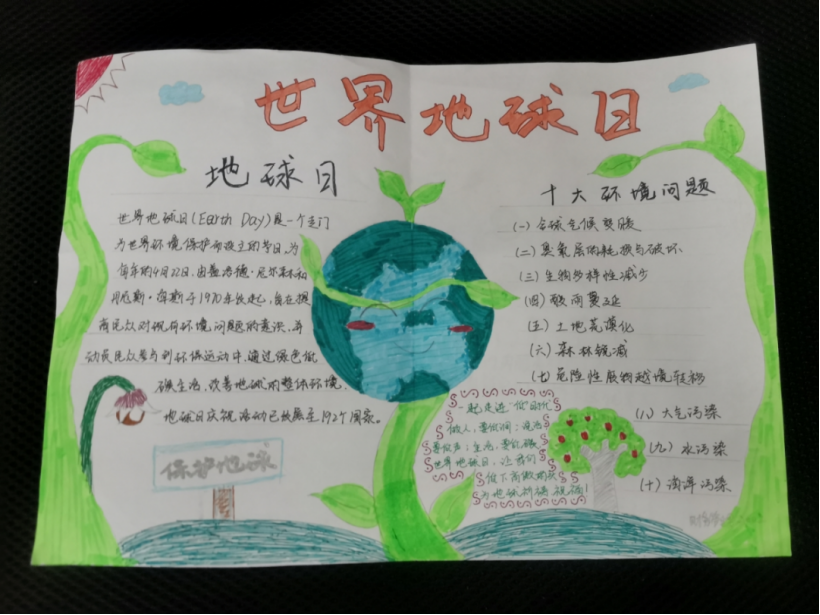 世界地球日
地球日
世界地球日(Earth Day)是一个专门
为世界环境保护而设立的节日,为
每年的4月22日,由盖洛德·尼尔森和
丹尼斯·海斯于1970年发起,旨在提
高民众对现有环境问题的意识,并
动员民众参与到环保运动中,通过绿色低
碳生活,改善地球的整体环境。
地球日庆祝活动已发展至192个国家。
保护地球
十大环境问题
(一)全球气候变暖
(二)臭氧层的耗损与破坏
(三)生物多样性减少
(四)酸雨蔓延
(五)土地荒漠化
(六)森林锐减
(七)危险性废物越境转移
(八)大气污染
(九)水污染
(十)海洋污染
一起走进"低"时代
做人,要低调;说话
要低声;生活,要低碳
世界地球日,让我们
低下高傲的头
为地球祈祷祝福!